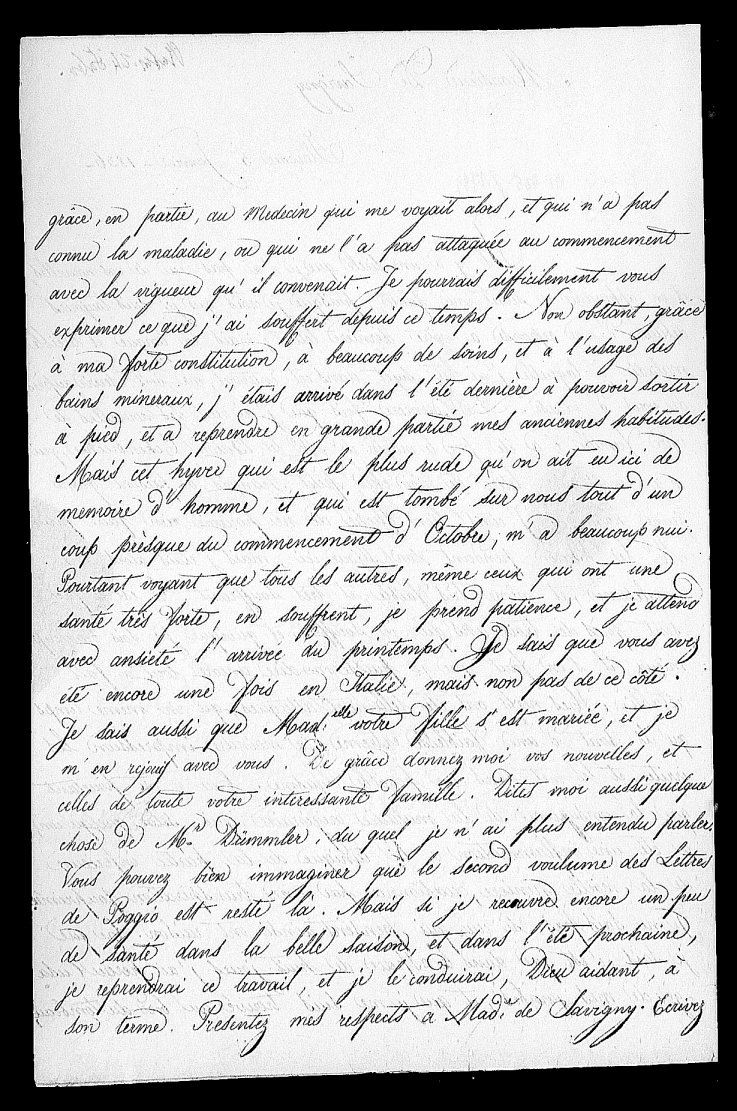 grâce, en partie, au Medecin qui me voyait alors, et qui n'a pas
connu la maladie, ou qui ne l'a pas attaquée au commencement
avec la vigueur qu'il convenait. Je pourrais difficilement vous
exprimer ce que j'ai souffert depuis ce temps. Non obstant, grâce
à ma forte constitution, à beaucoup de soins, et à l'usage des
bains mineraux, j'étais arrivé dans l'été dernière à pouvoir sortir
à pied, et a reprendre en grande partie mes anciennes habitudes.
Mais cet hyver qui est le plus rude qu'on ait eu ici de
memoire d'homme, et qui est tombé sur nous tout d'un
coup prèsque du commencement d'Octobre, m'a beaucoup nui.
Pourtant voyant que tous les autres, même ceux qui ont une
santé très forte, en souffrent, je prend patience, et je attend
avec ansieté l'arrivée du printemps. Je sais que vous avez
eté encore une fois en Italie, mais non pas de ce côté.
Je sais aussi que Mad.elle votre fille s'est mariée, et je
m'en rejouis avec vous. De grâce donnez moi vos nouvelles, et
celles de toute votre interessante famille. Dites moi aussi quelque
chose de M.r Dümmler, du quel je n'ai plus entendu parler.
Vous pouvez bien immaginer que le second voulume des Lettres
de Poggio est resté là. Mais si je recouvre encore un peu
de santé dans la belle saison, et dans l'été prochaine,
je reprendrai ce travail, et je le conduirai, Dieu aidant, à
son terme. Presentez mes respects a Mad.e de Savigny. Ecrivez